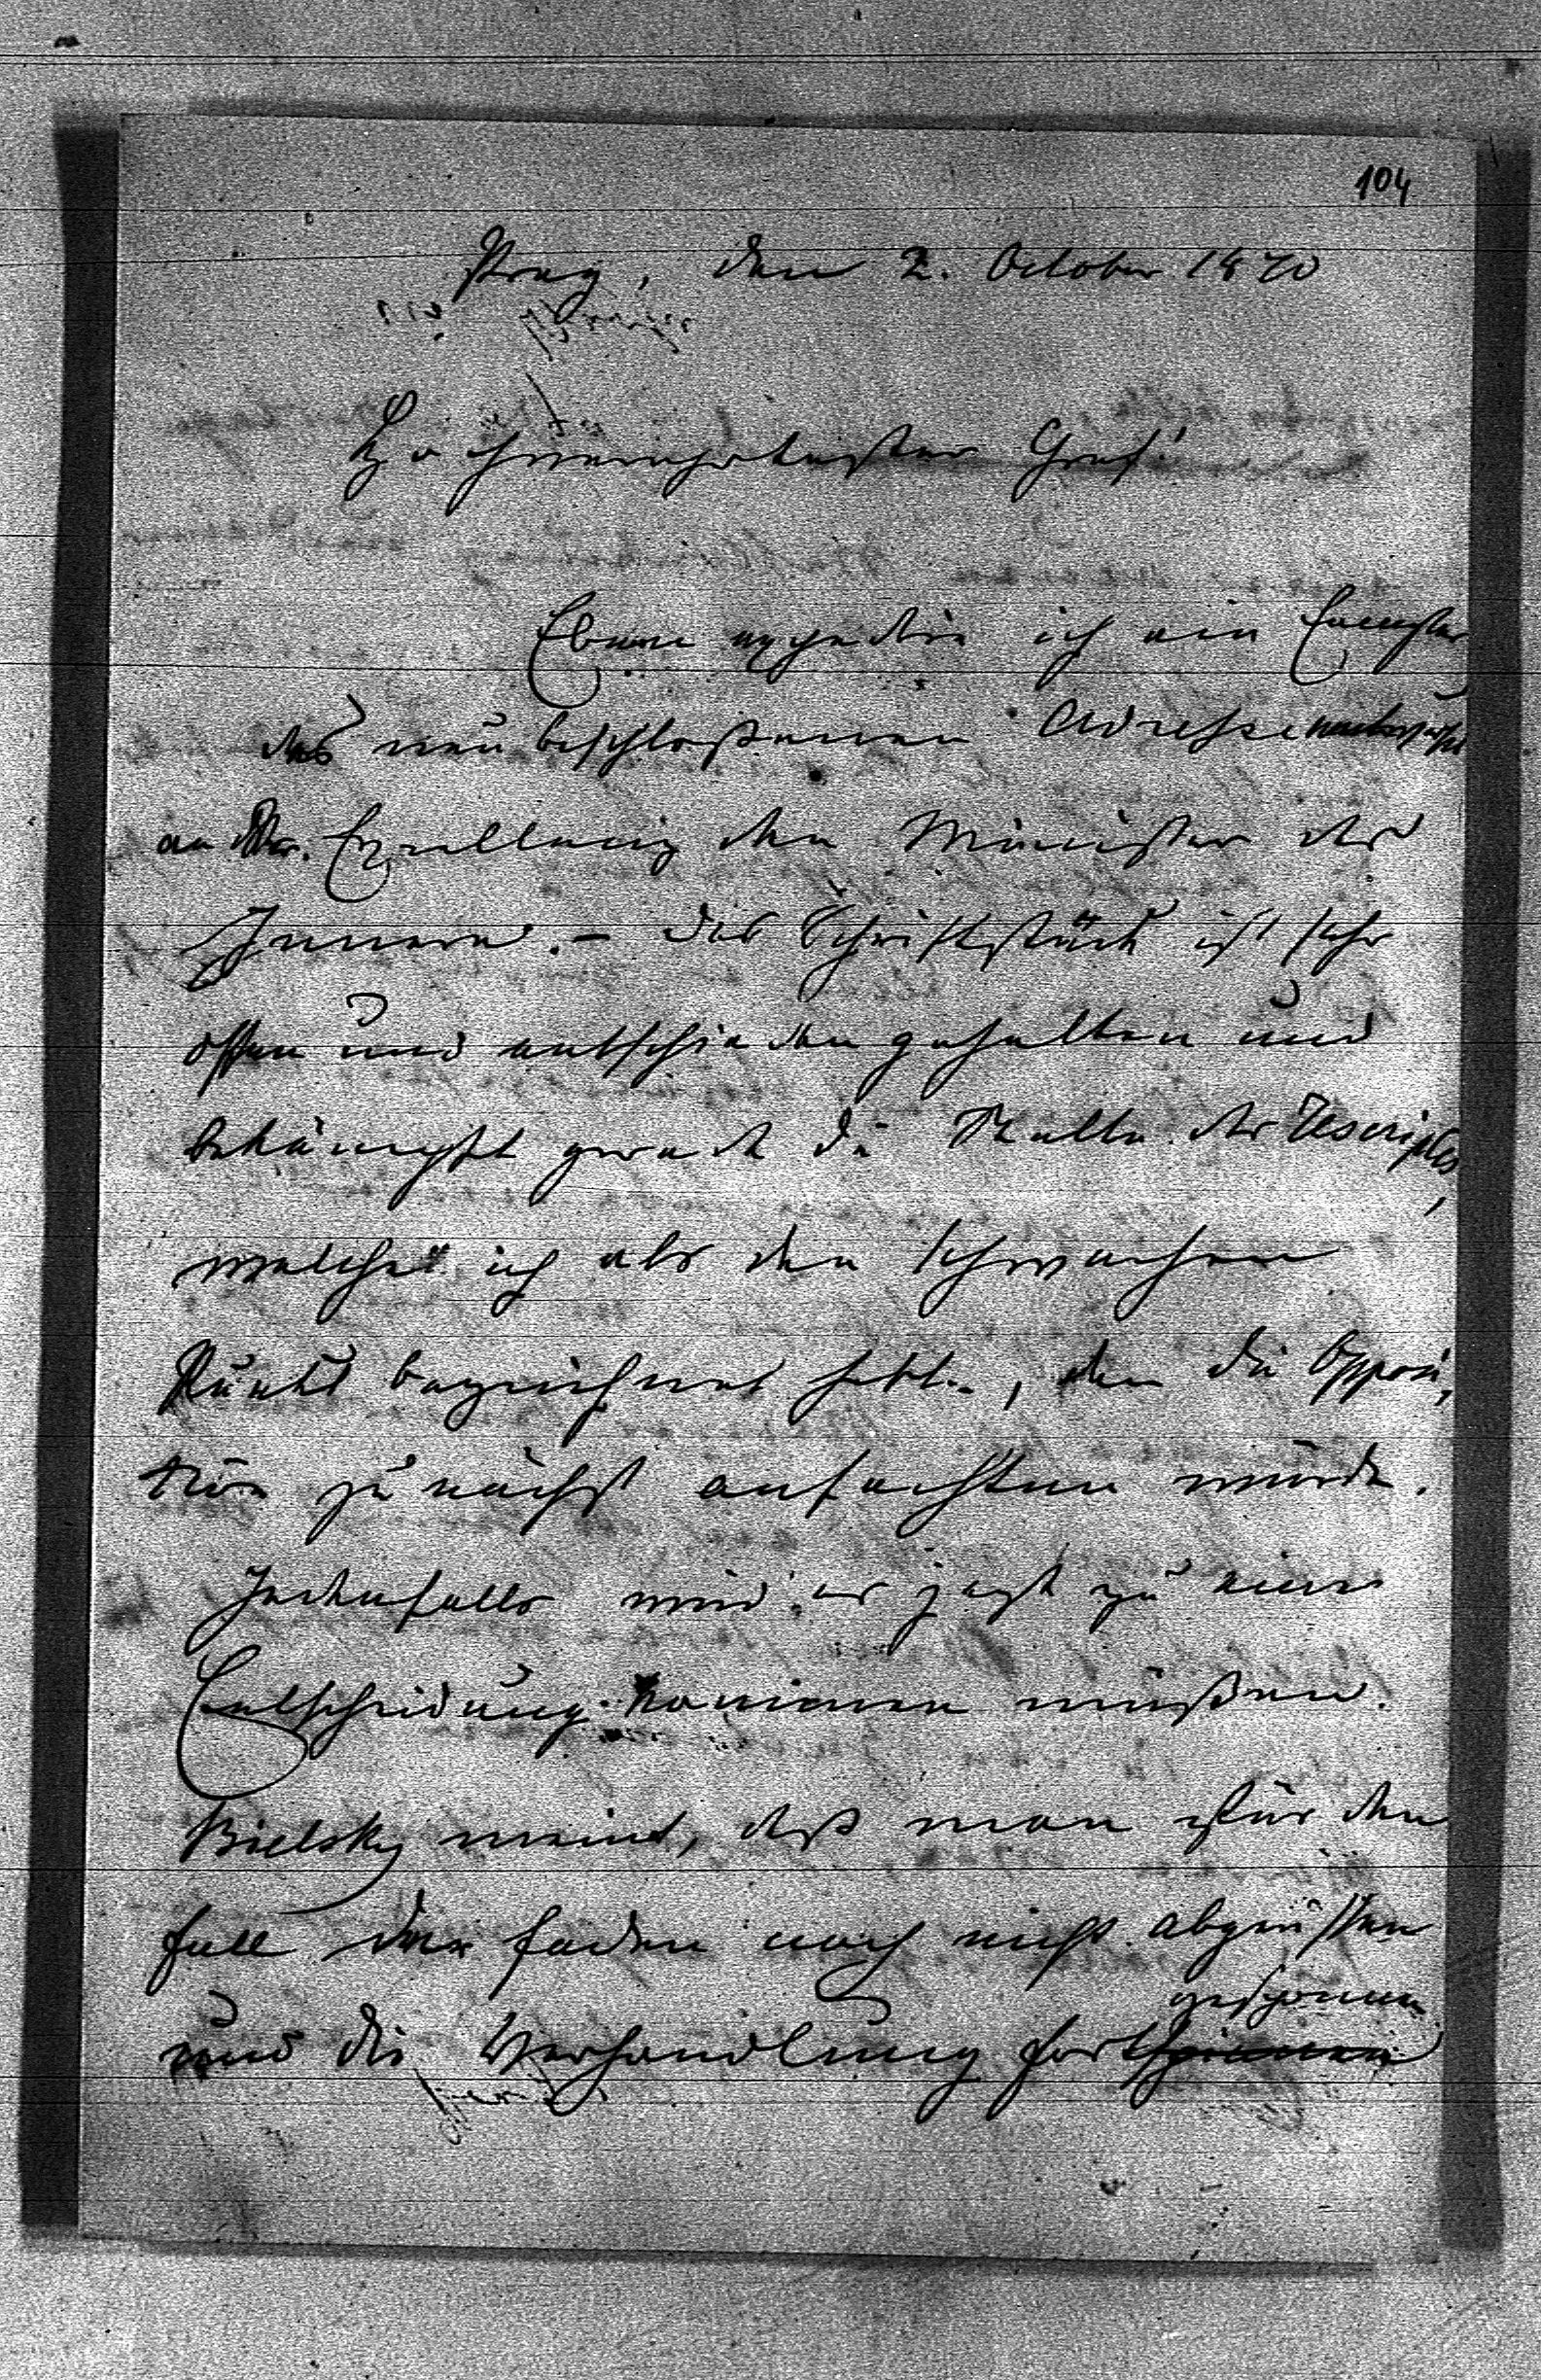 104
Prag, den 2. October 1870
Hochverehrtester Graf!
Eben expedire ich ein Exemplar
des neu beschloßenen Adressentwurfs
an Se. Exzellenz den Minister des
Innern. – Das Schriftstück ist sehr
offen und entschieden gehalten und
bekämpft gerade die Stelle des Rescriptes,
welche ich als den schwachen
Punkt bezeichnet habe, den die Opposi,
tion zunächst anfechten würde.
Jedenfalls wird es jetzt zu einer
Entscheidung kommen müßen.
Bielsky meint, daß man für den
Fall den Faden noch nicht abgerissen
gesponnen
und die Verhandlung fort